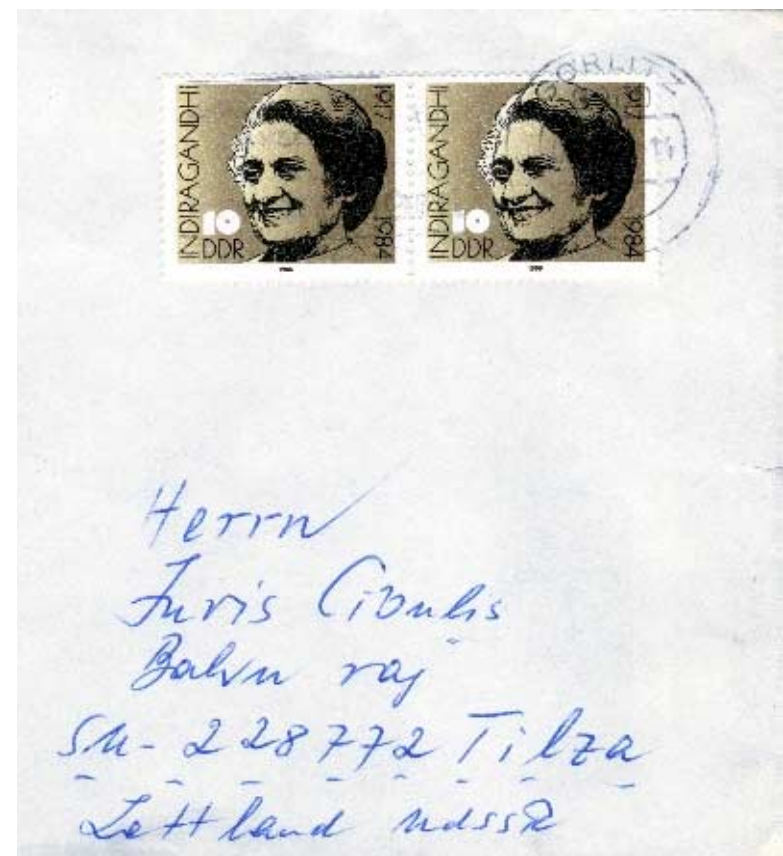 INDIRA GANDHI
1917
1984
10
DDR
INDIRA GANDHI
1917
1984
10
DDR
GÖRLITZ
Herrn
Juris Cibulis
Balvu raj
SU-228772 Tilza
Lettland UdSSR